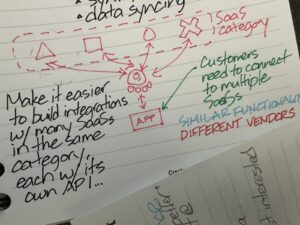 • data syncing
SaaS
category
Customers
need to connect
to multiple
SaaSs
Make it easier
to build integrations
w/ many SaaS
in the same
category,
each w/ its
own API...
APP
SIMILAR FUNCTIONALI
DIFFERENT VENDORS